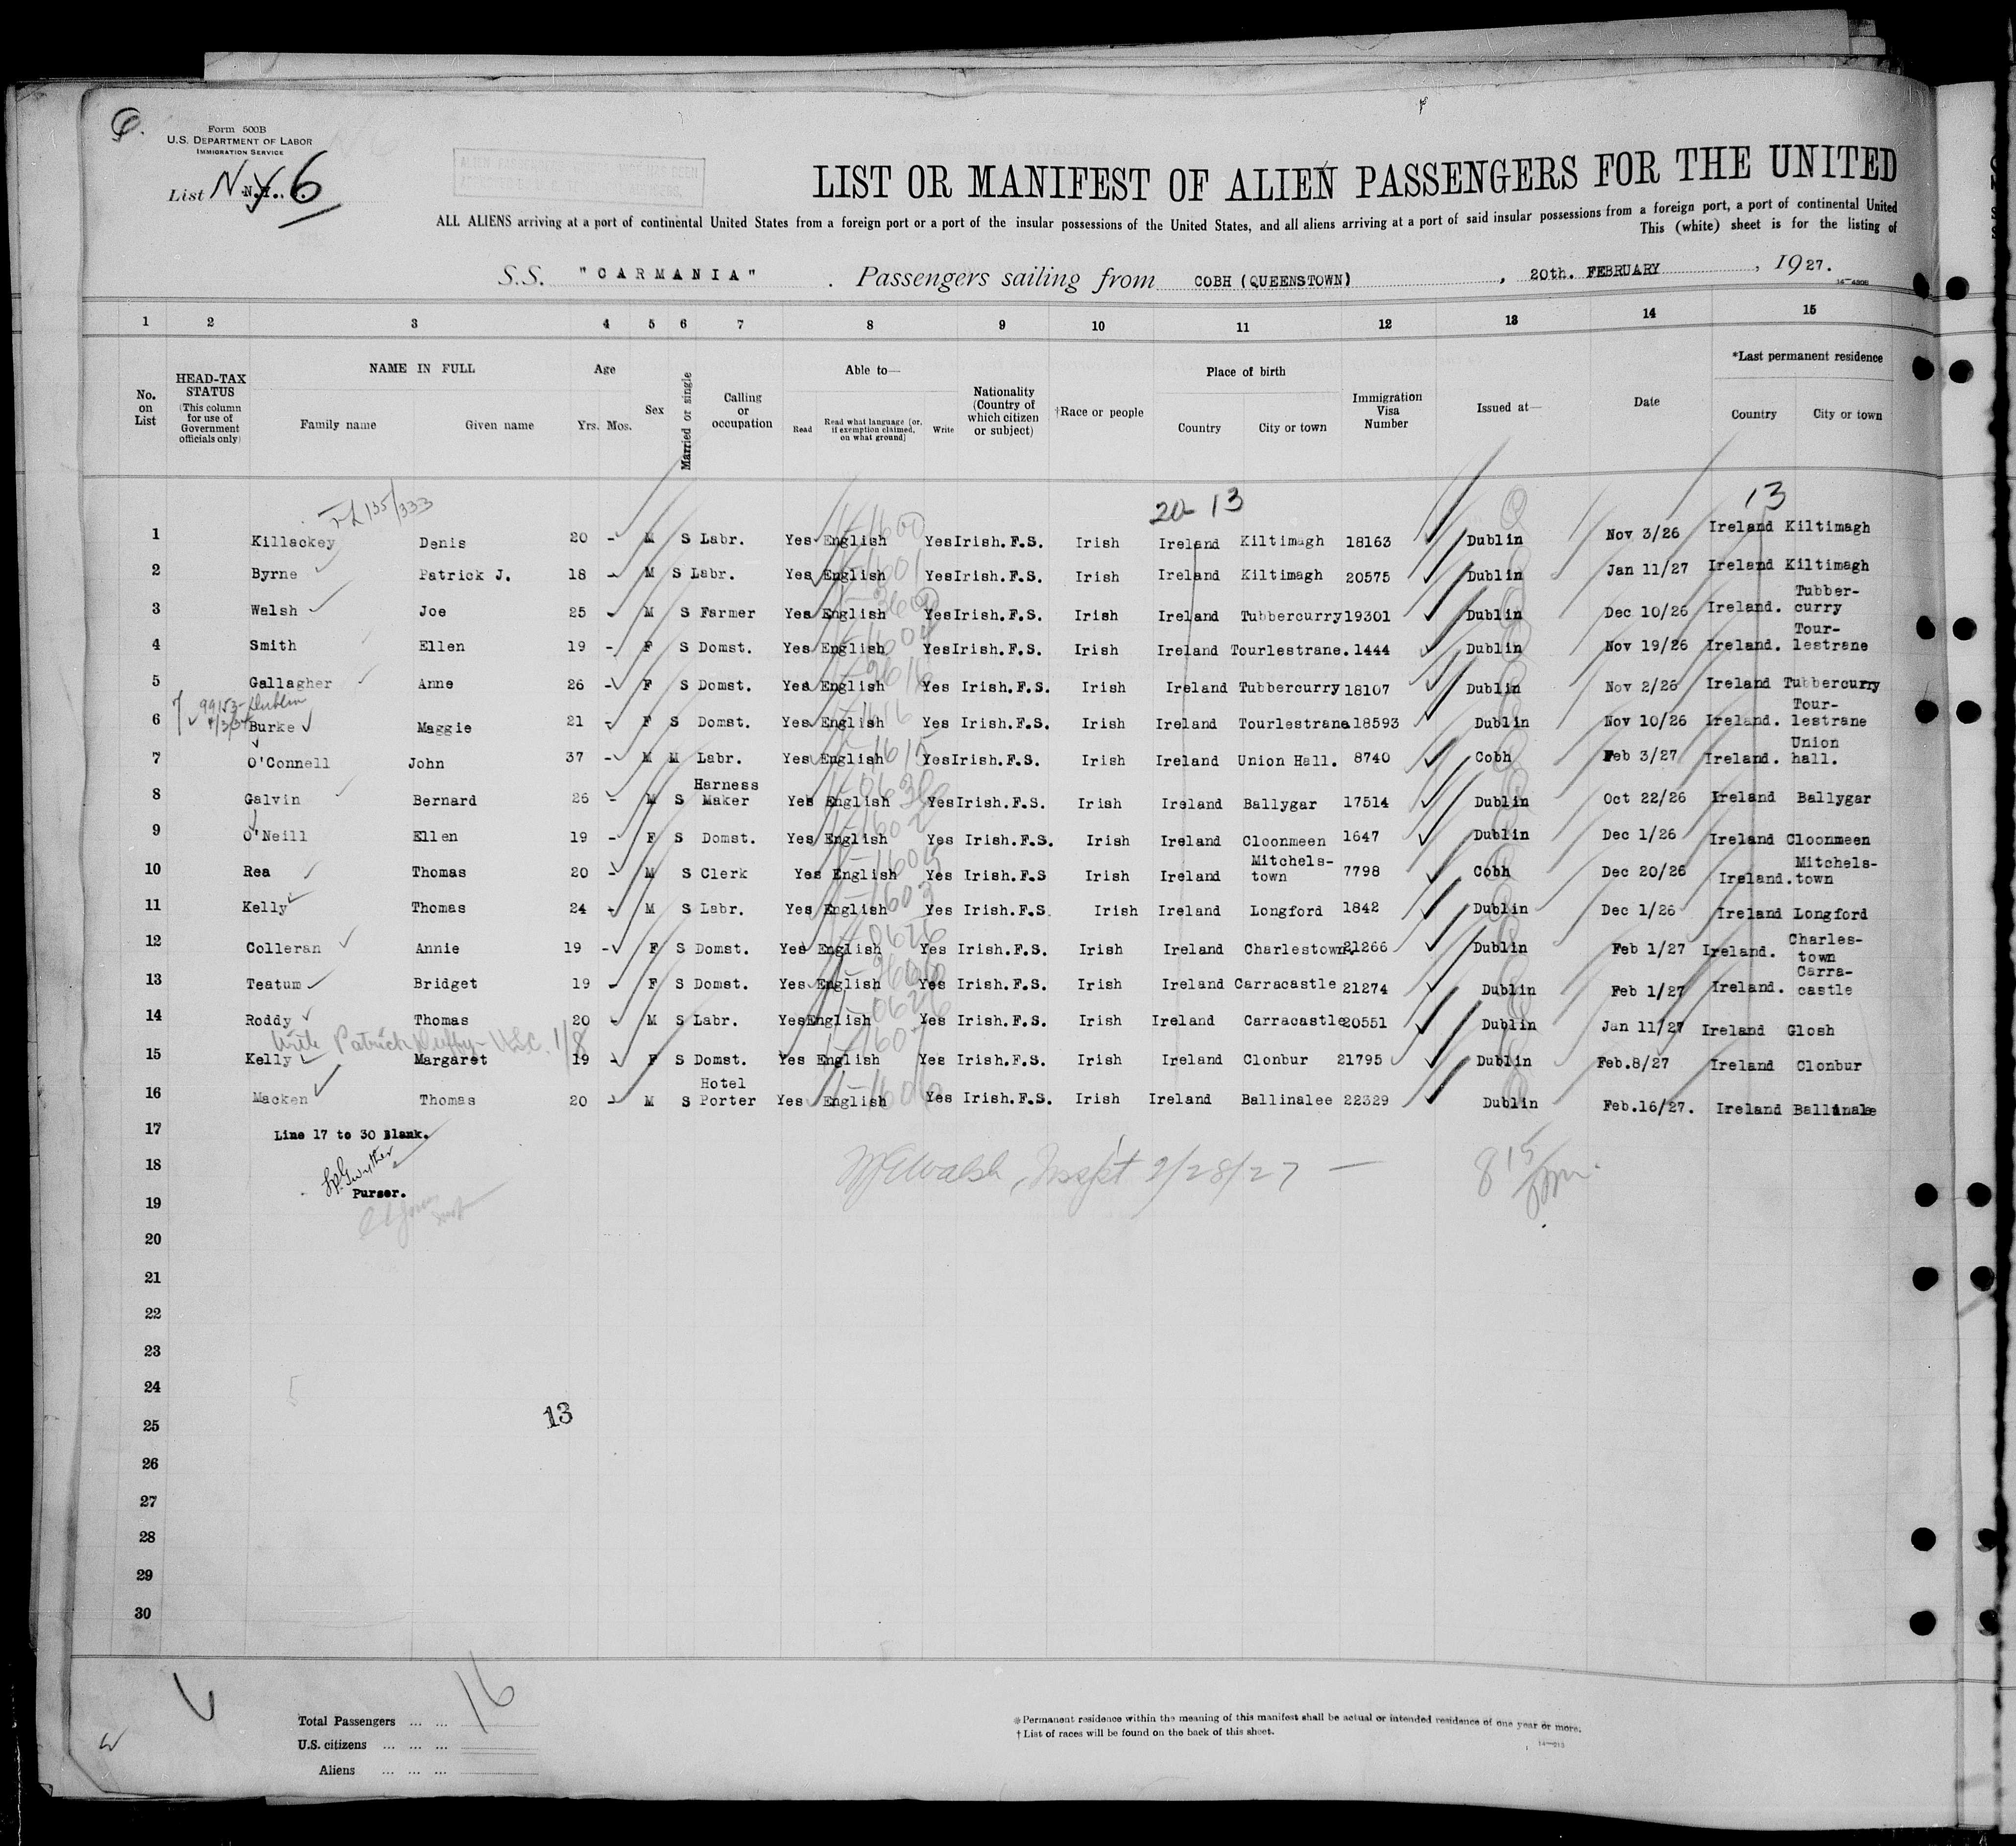 6.
Form 500B
U.S. DEPARTMENT OF LABOR
IMMIGRATION SERVICE
List N.Y. 6
LIST OR MANIFEST OF ALIEN PASSENGERS FOR THE UNITED
ALL ALIENS arriving at a port of continental United States from a foreign port or a port of the insular possessions of the United States, and all aliens arriving at a port of said insular possessions from a foreign port, a port of continental United
This (white) sheet is for the listing of
S.S. "CARMANIA". Passengers sailing from COBH (QUEENSTOWN), 20th. FEBRUARY, 1927.
1 2 3 4 5 6 7 8 9 10 11 12 13 14 15
No. on List
HEAD-TAX STATUS (This column for use of Government officials only)
NAME IN FULL
Family name Given name
Age
Yrs. Mos.
Sex
Married or single
Calling or occupation
Able to—
Read
Read what language [or, if exemption claimed, on what ground]
Write
Nationality (Country of which citizen or subject)
†Race or people
Place of birth
Country City or town
Immigration Visa Number
Issued at—
Date
*Last permanent residence
Country City or town
20-13 13
1 Killackey Denis 20 - M S Labr. Yes English Yes Irish.F.S. Irish Ireland Kiltimagh 18163 Dublin Nov 3/26 Ireland Kiltimagh
2 Byrne Patrick J. 18 - M S Labr. Yes English Yes Irish.F.S. Irish Ireland Kiltimagh 20575 Dublin Jan 11/27 Ireland Kiltimagh
3 Walsh Joe 25 - M S Farmer Yes English Yes Irish.F.S. Irish Ireland Tubbercurry 19301 Dublin Dec 10/26 Ireland. Tubber-curry
4 Smith Ellen 19 - F S Domst. Yes English Yes Irish.F.S. Irish Ireland Tourlestrane. 1444 Dublin Nov 19/26 Ireland. Tour-lestrane
5 Gallagher Anne 26 - F S Domst. Yes English Yes Irish.F.S. Irish Ireland Tubbercurry 18107 Dublin Nov 2/26 Ireland Tubbercurry
99153-Dublin
6 Burke Maggie 21 - F S Domst. Yes English Yes Irish.F.S. Irish Ireland Tourlestrane 18593 Dublin Nov 10/26 Ireland. Tour-lestrane
7 O'Connell John 37 - M M Labr. Yes English Yes Irish.F.S. Irish Ireland Union Hall. 8740 Cobh Feb 3/27 Ireland. Union hall.
8 Galvin Bernard 26 - M S Harness Maker Yes English Yes Irish.F.S. Irish Ireland Ballygar 17514 Dublin Oct 22/26 Ireland Ballygar
9 O'Neill Ellen 19 - F S Domst. Yes English Yes Irish.F.S. Irish Ireland Cloonmeen 1647 Dublin Dec 1/26 Ireland Cloonmeen
10 Rea Thomas 20 - M S Clerk Yes English Yes Irish.F.S Irish Ireland Mitchels-town 7798 Cobh Dec 20/26 Ireland. Mitchels-town
11 Kelly Thomas 24 - M S Labr. Yes English Yes Irish.F.S. Irish Ireland Longford 1842 Dublin Dec 1/26 Ireland Longford
12 Colleran Annie 19 - F S Domst. Yes English Yes Irish.F.S. Irish Ireland Charlestown. 21266 Dublin Feb 1/27 Ireland. Charles-town
13 Teatum Bridget 19 - F S Domst. Yes English Yes Irish.F.S. Irish Ireland Carracastle 21274 Dublin Feb 1/27 Ireland. Carra-castle
14 Roddy Thomas 20 - M S Labr. Yes English Yes Irish.F.S. Irish Ireland Carracastle 20551 Dublin Jan 11/27 Ireland Glosh
Patrick Duffy - USC. 1/8
15 Kelly Margaret 19 - F S Domst. Yes English Yes Irish.F.S. Irish Ireland Clonbur 21795 Dublin Feb.8/27 Ireland Clonbur
16 Macken Thomas 20 - M S Hotel Porter Yes English Yes Irish.F.S. Irish Ireland Ballinalee 22329 Dublin Feb.16/27. Ireland Ballinale
17 Line 17 to 30 Blank.
18 Walsh, 2/28/27 - 8 15
Purser.
19
20
21
22
23
24
25 13
26
27
28
29
30
Total Passengers ... ... 16
U.S. citizens ... ... ...
Aliens ... ... ...
* Permanent residence within the meaning of this manifest shall be actual or intended residence of one year or more.
† List of races will be found on the back of this sheet.